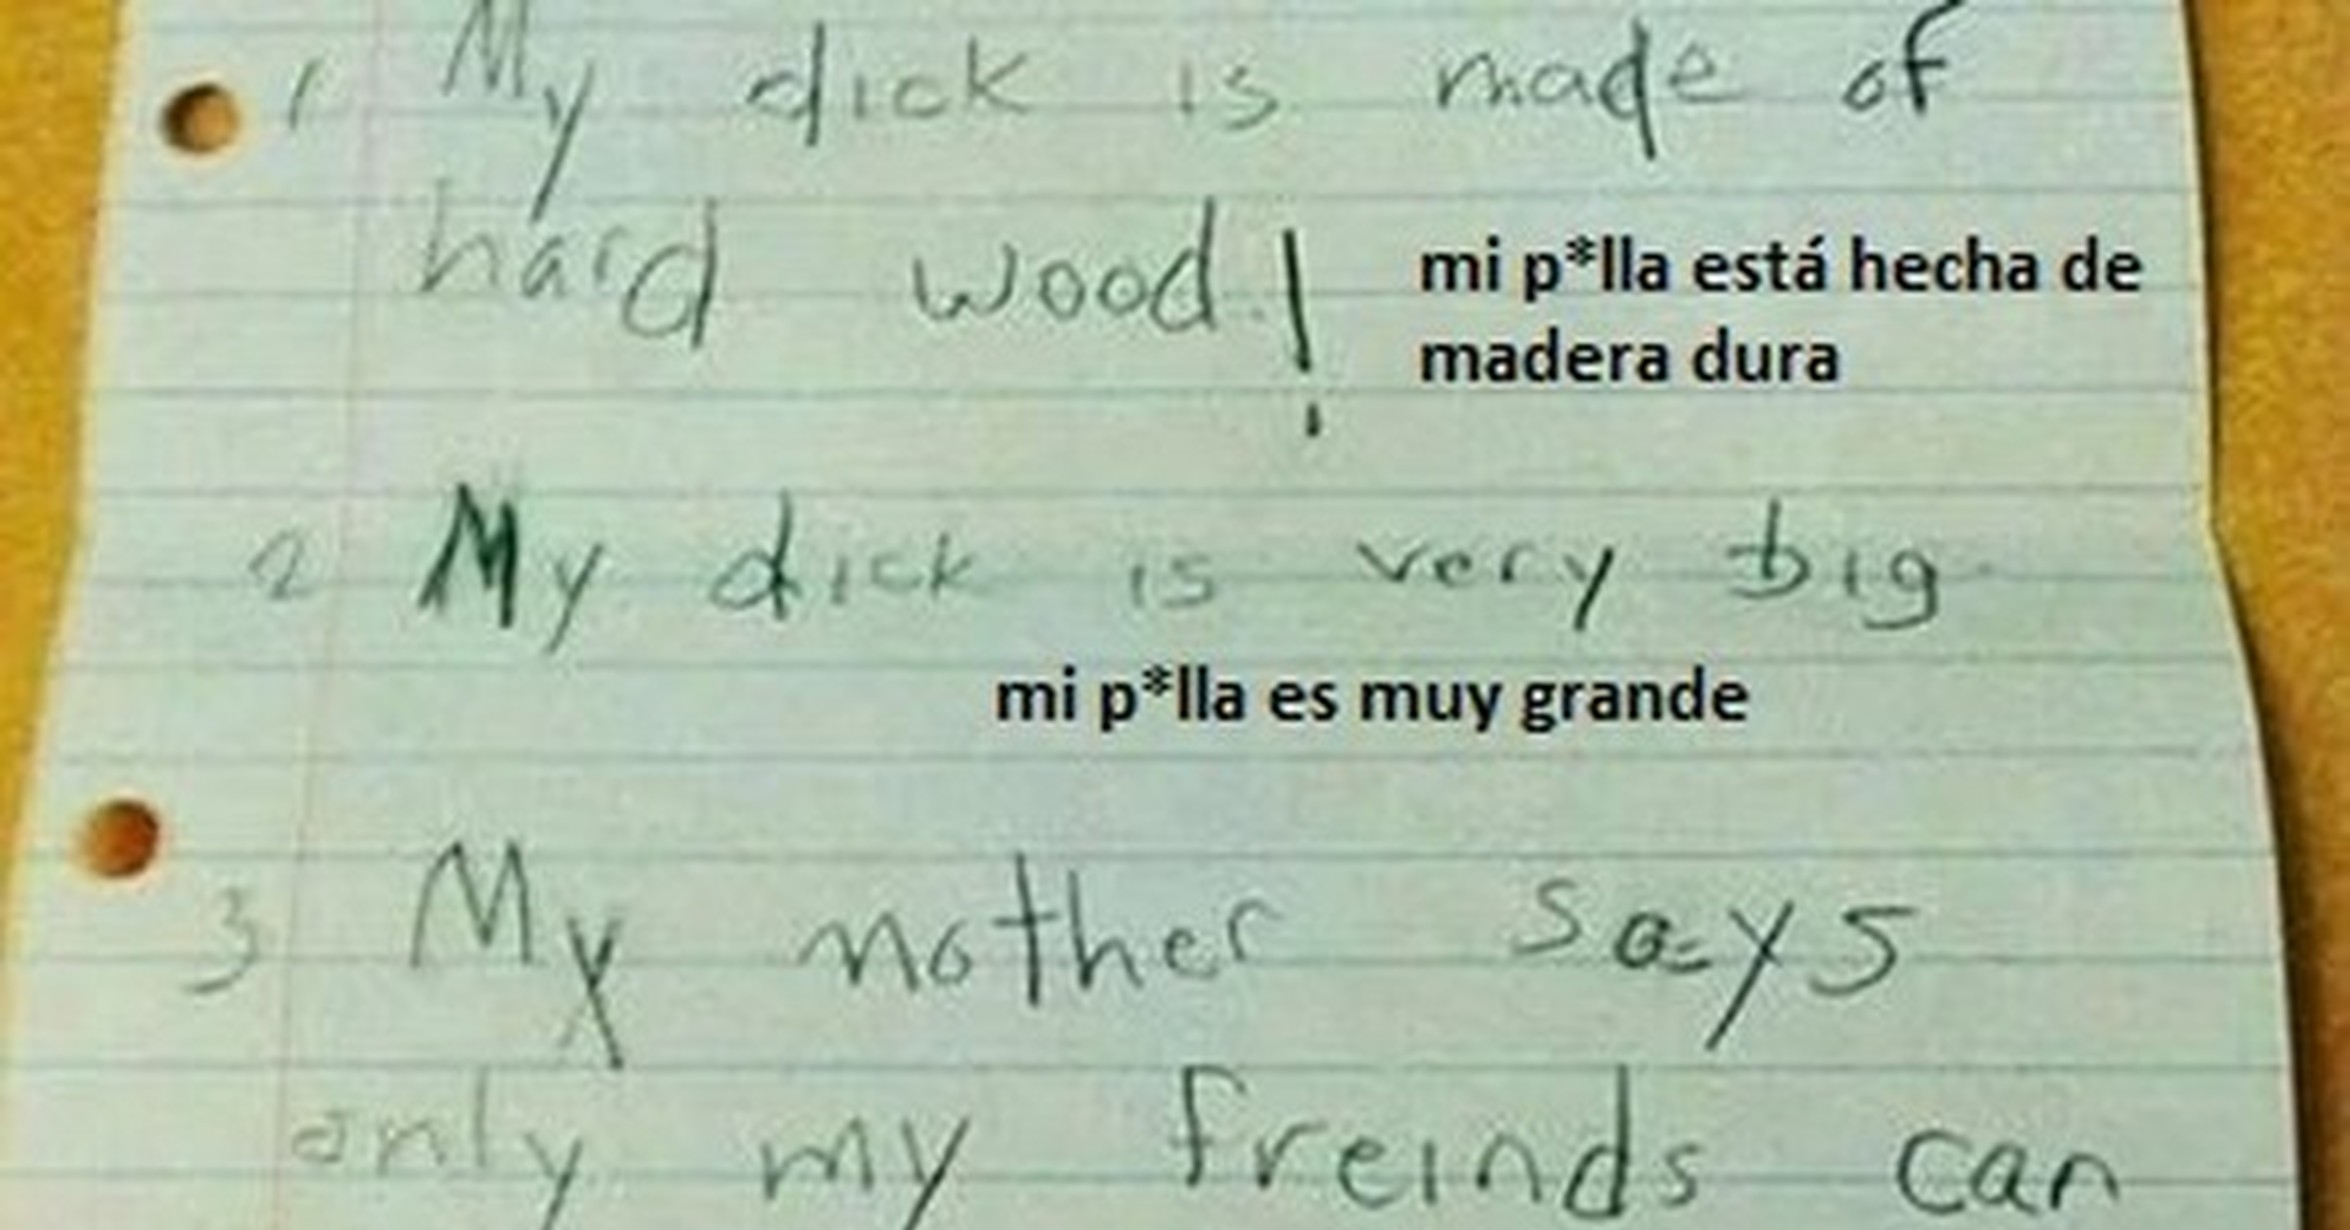 1 My dick is made of
hard wood.!
mi p*lla está hecha de
madera dura
2 My dick is very big
mi p*lla es muy grande
3 My mother says
only my freinds can